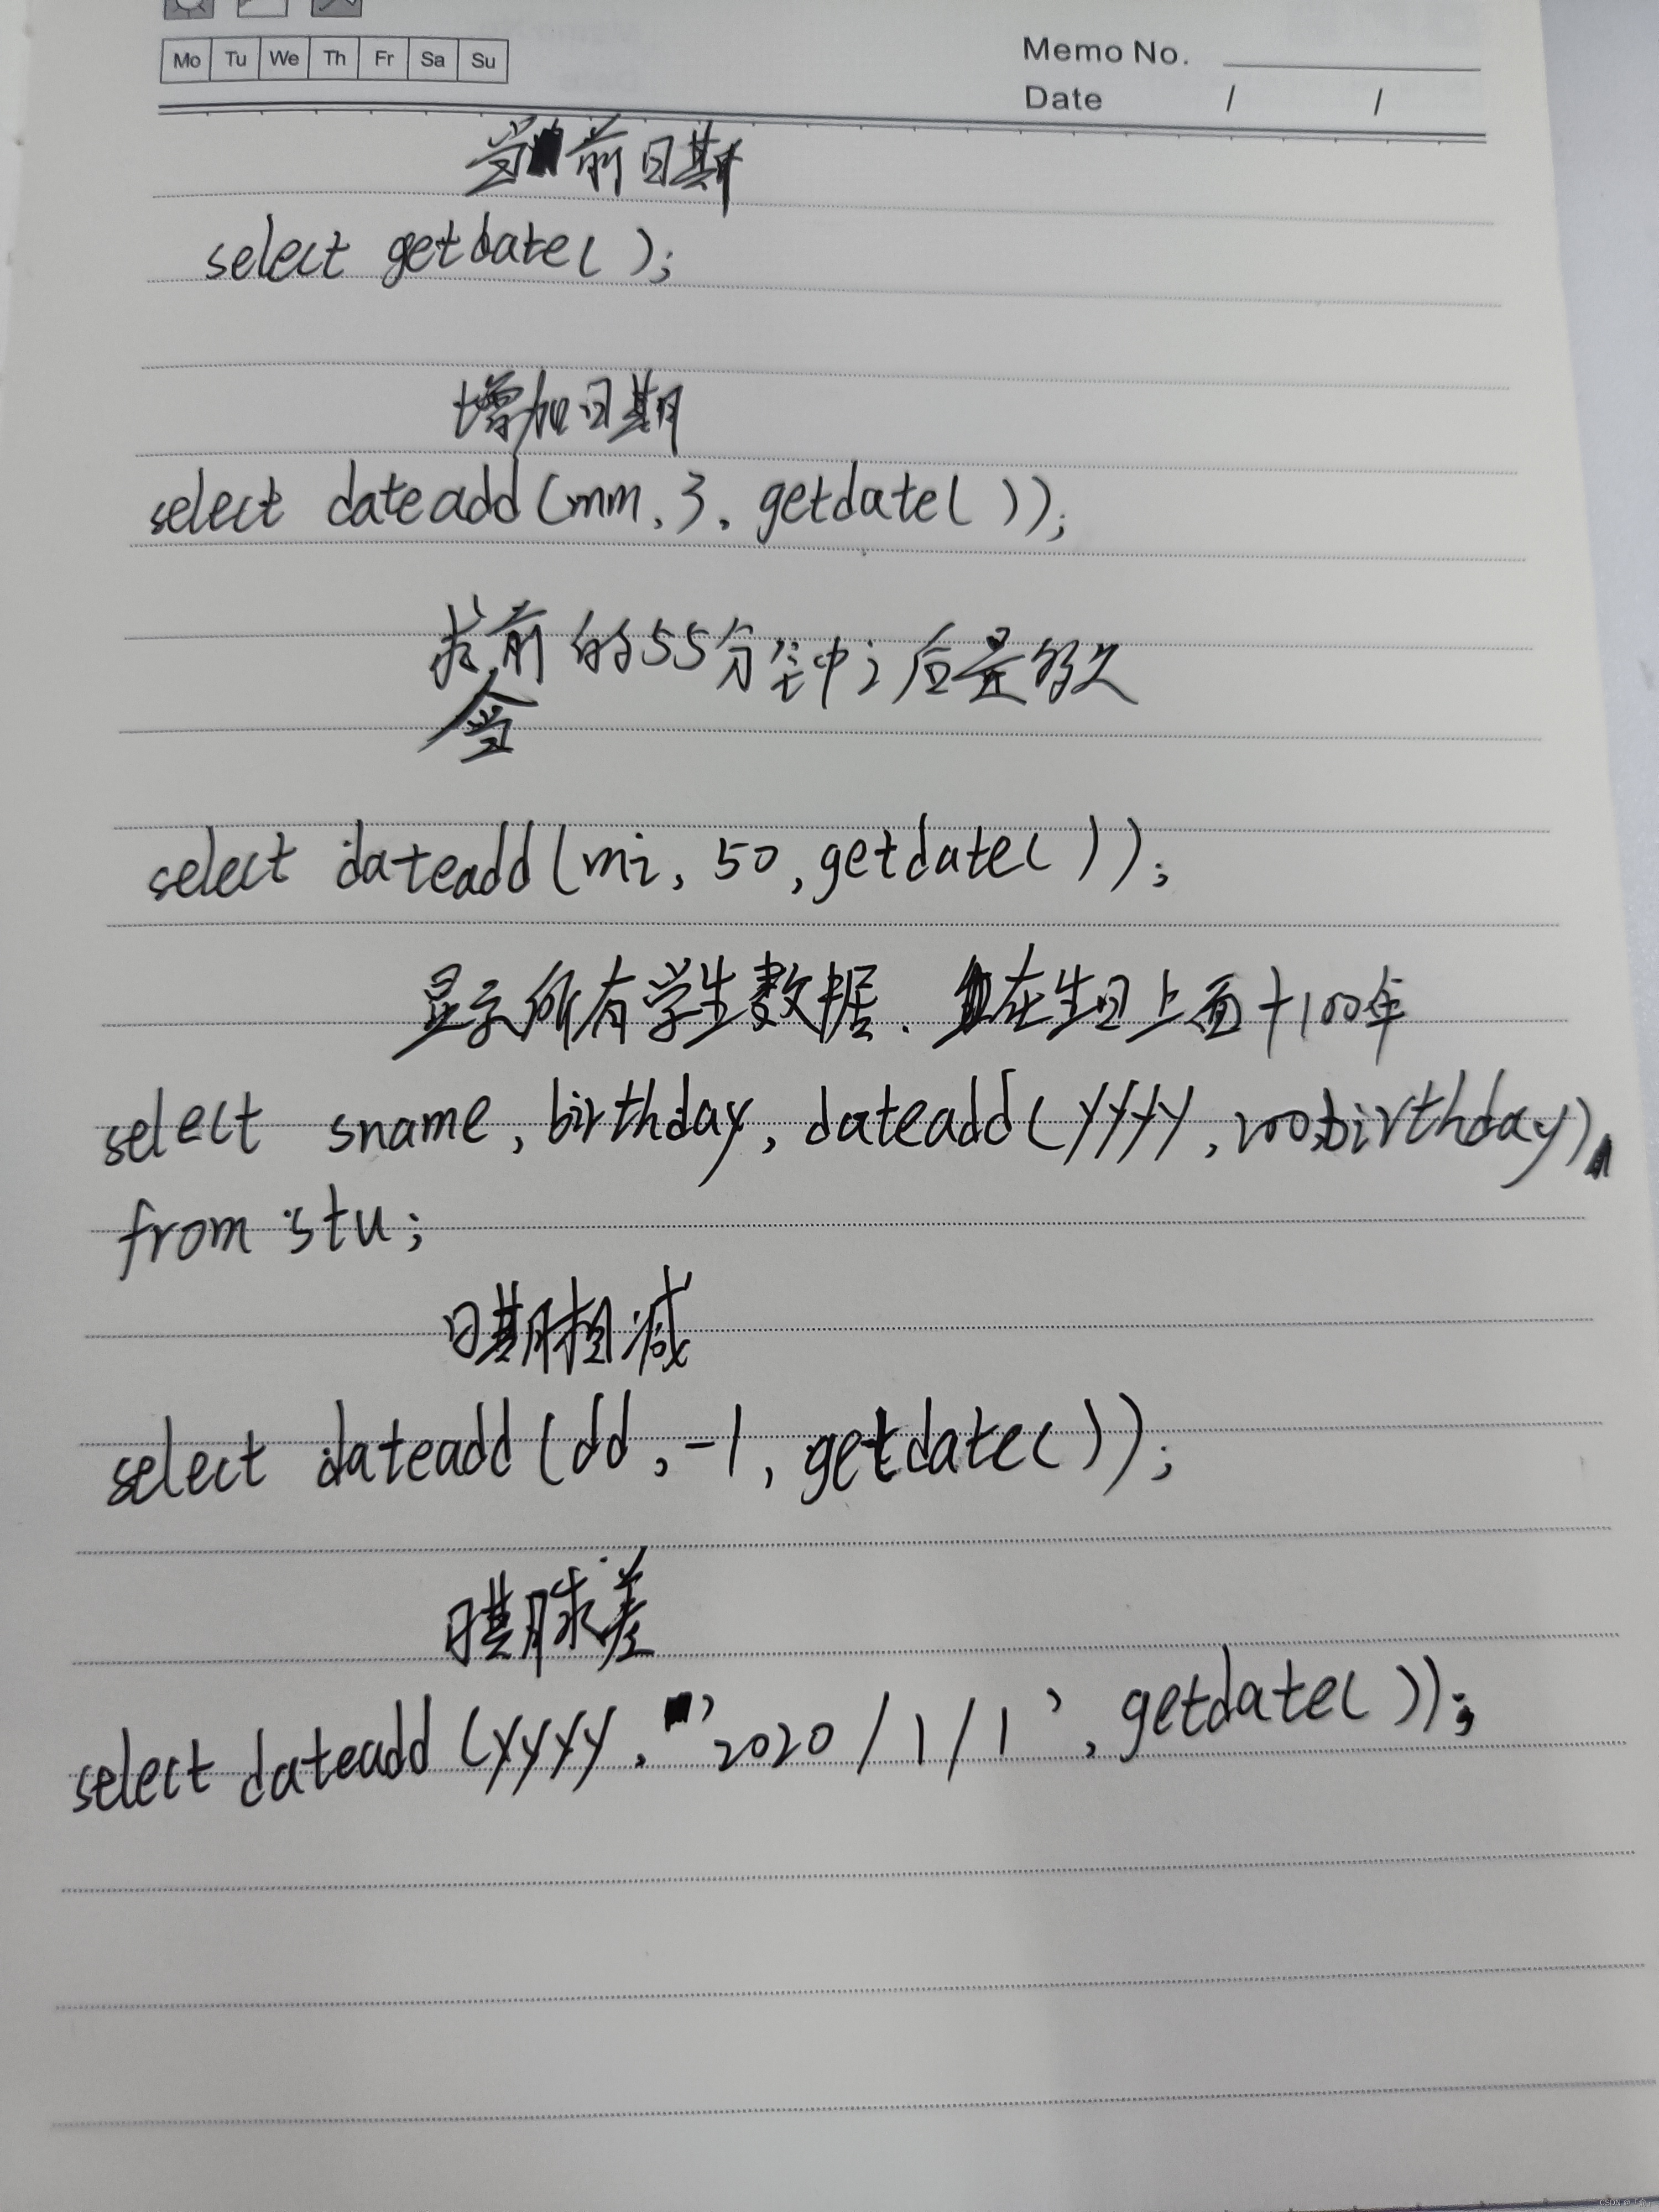 Mo Tu We Th Fr Sa Su
Memo No.
Date / /
当前日期
select getdate( );
增加日期
select dateadd(mm,3,getdate( ));
求前的55分钟之后是多久
当
select dateadd(mi,50,getdate( ));
显示所有学生数据、在生日上面+100年
select sname,birthday,dateadd(yyyy,100birthday)
from stu;
日期相减
select dateadd(dd,-1,getdate( ));
日期求差
select dateadd(yyyy,'2020/1/1',getdate( ));